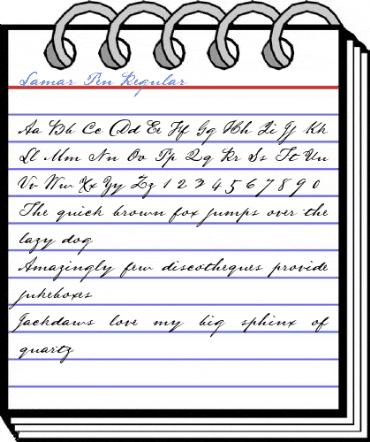 Lamar Pen Regular
Aa Bb Cc Dd Ee Ff Gg Hh Ii Jj Kk
Ll Mm Nn Oo Pp Qq Rr Ss Tt Uu
Vv Ww Xx Yy Zz 1 2 3 4 5 6 7 8 9 0
The quick brown fox jumps over the
lazy dog
Amazingly few discotheques provide
jukeboxes
Jackdaws love my big sphinx of
quartz